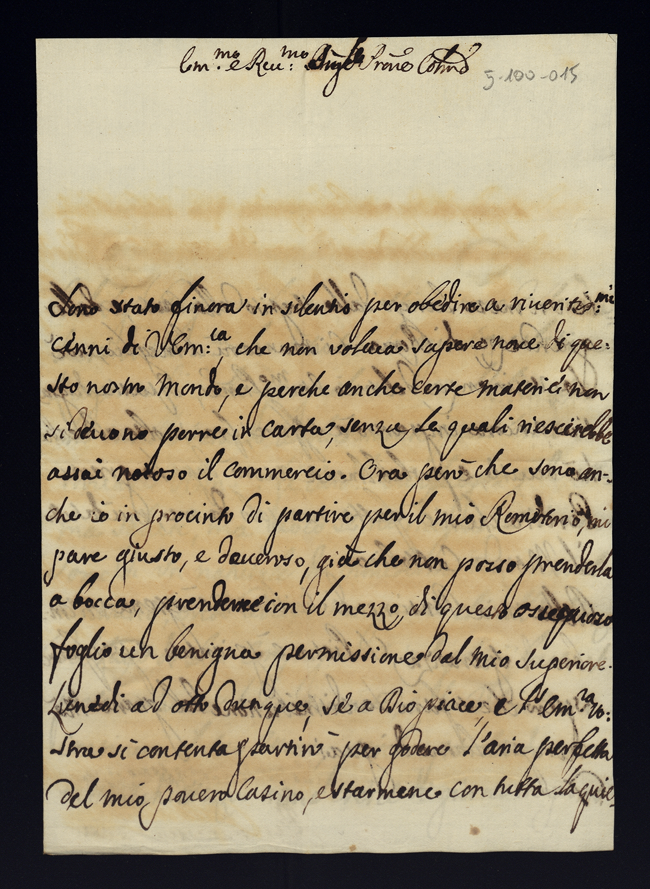 Em.mo e Rev.mo Sig.re Prone Colmo
5-100-015
Sono stato finora in silentio per obedire a riveritis.mi
Cenni di V Em.za che non voleva sapere nove di que-
sto nostro Mondo, e perche anche certe materie non
si devono porre in carta, senza le quali riescirebbe
assai noioso il commercio. Ora però che sono an-
che io in procinto di partire per il mio Romitorio, mi
pare giusto, e doveroso, già che non posso prenderla
a bocca, prenderne con il mezzo di questo ossequioso
foglio un benigna permissione dal mio Superiore.
Lunedì ad otto dunque, se a Dio piace, e l' Em.za Vo-
stra si contenta partirò per godere l'aria perfetta
del mio povero Casino, e starmene con tutta la quie-